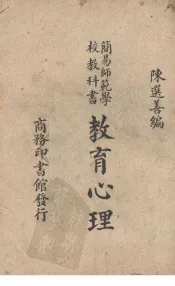 陳選善編
簡易師範學
校教科書
教育心理
商務印書館發行